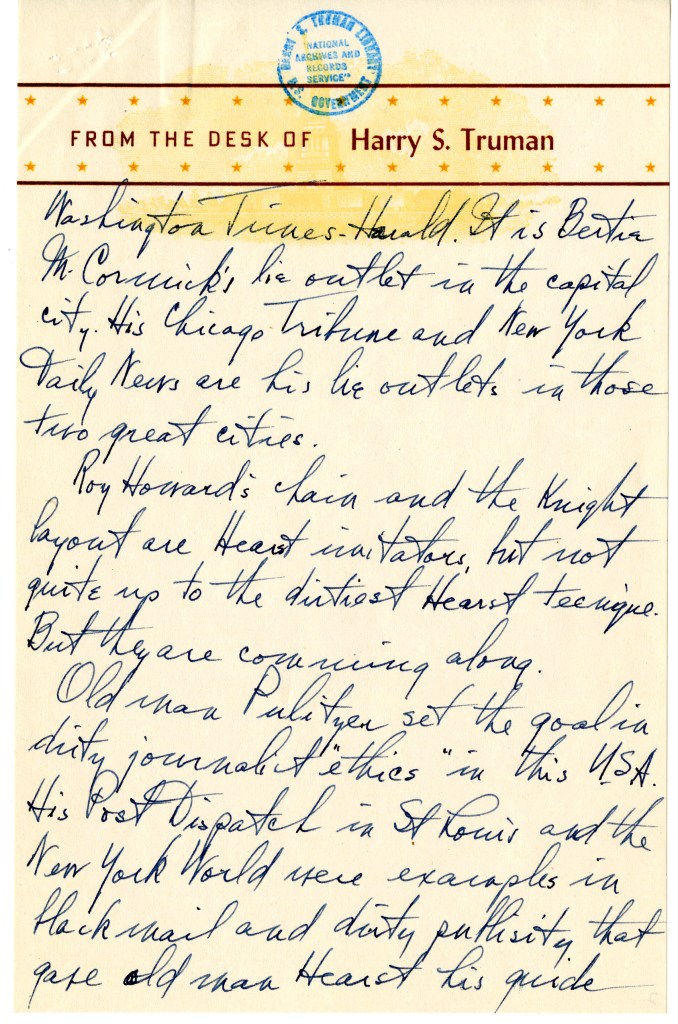 HARRY S. TRUMAN LIBRARY
NATIONAL
ARCHIVES AND
RECORDS
SERVICE
U.S. GOVERNMENT
FROM THE DESK OF Harry S. Truman
Washington Times-Herald. It is Bertie
McCormick's lie outlet in the capital
city. His Chicago Tribune and New York
Daily News are his lie outlets in those
two great cities.
Roy Howard's chain and the Knight
layout are Hearst imitators, but not
quite up to the dirtiest Hearst tecnique.
But they are comming along.
Old man Pulitzer set the goal in
dirty journalist "ethics" in this USA.
His Post Dispatch in St Louis and the
New York World were examples in
blackmail and dirty publisity that
gave old man Hearst his guide